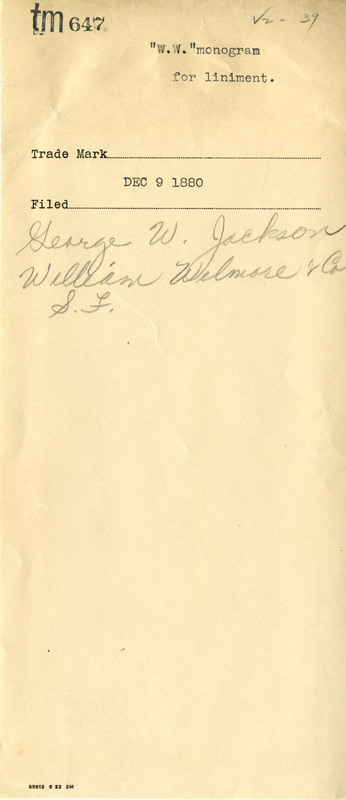 tm 647
V2- 39
"W.W."monogram
for liniment.
Trade Mark
DEC 9 1880
Filed
George W. Jackson
William Wilmore & Co
S.F.
95912 6 32 3M